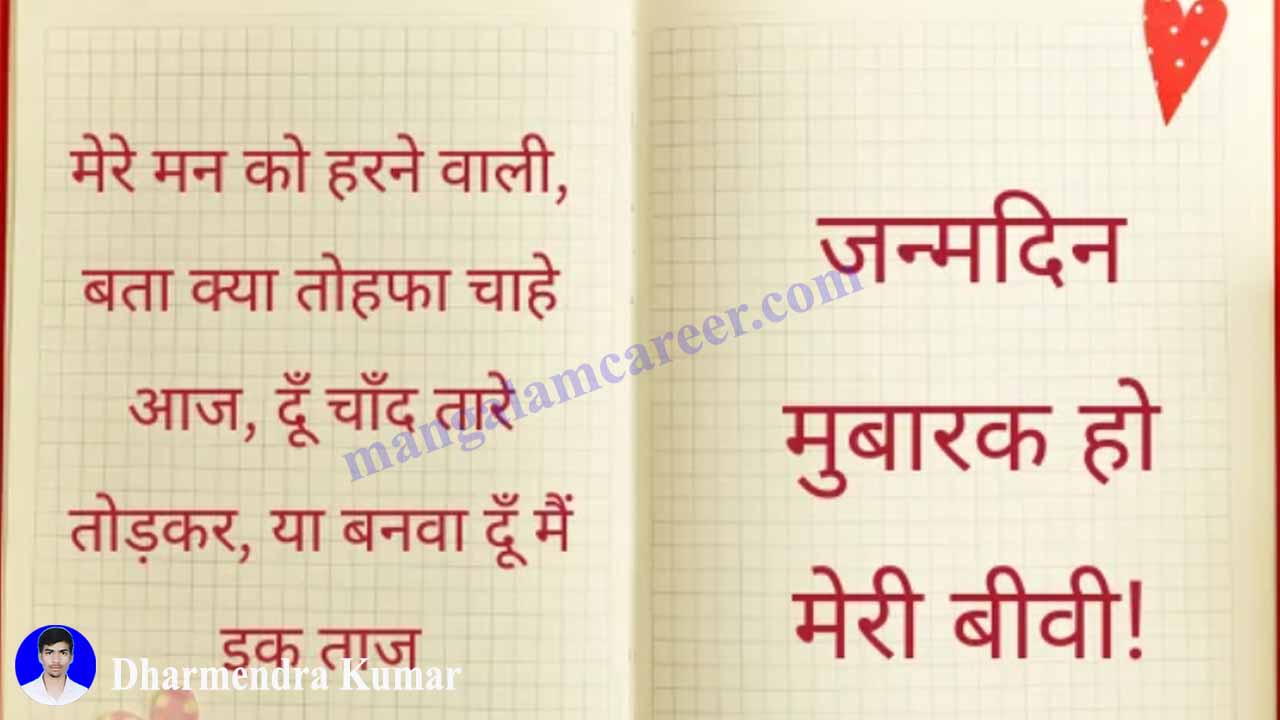 मेरे मन को हरने वाली,
बता क्या तोहफा चाहे
आज, दूँ चाँद तारे
तोड़कर, या बनवा दूँ मैं
इक ताज
जन्मदिन
मुबारक हो
मेरी बीवी!
mangalamcareer.com
Dharmendra Kumar